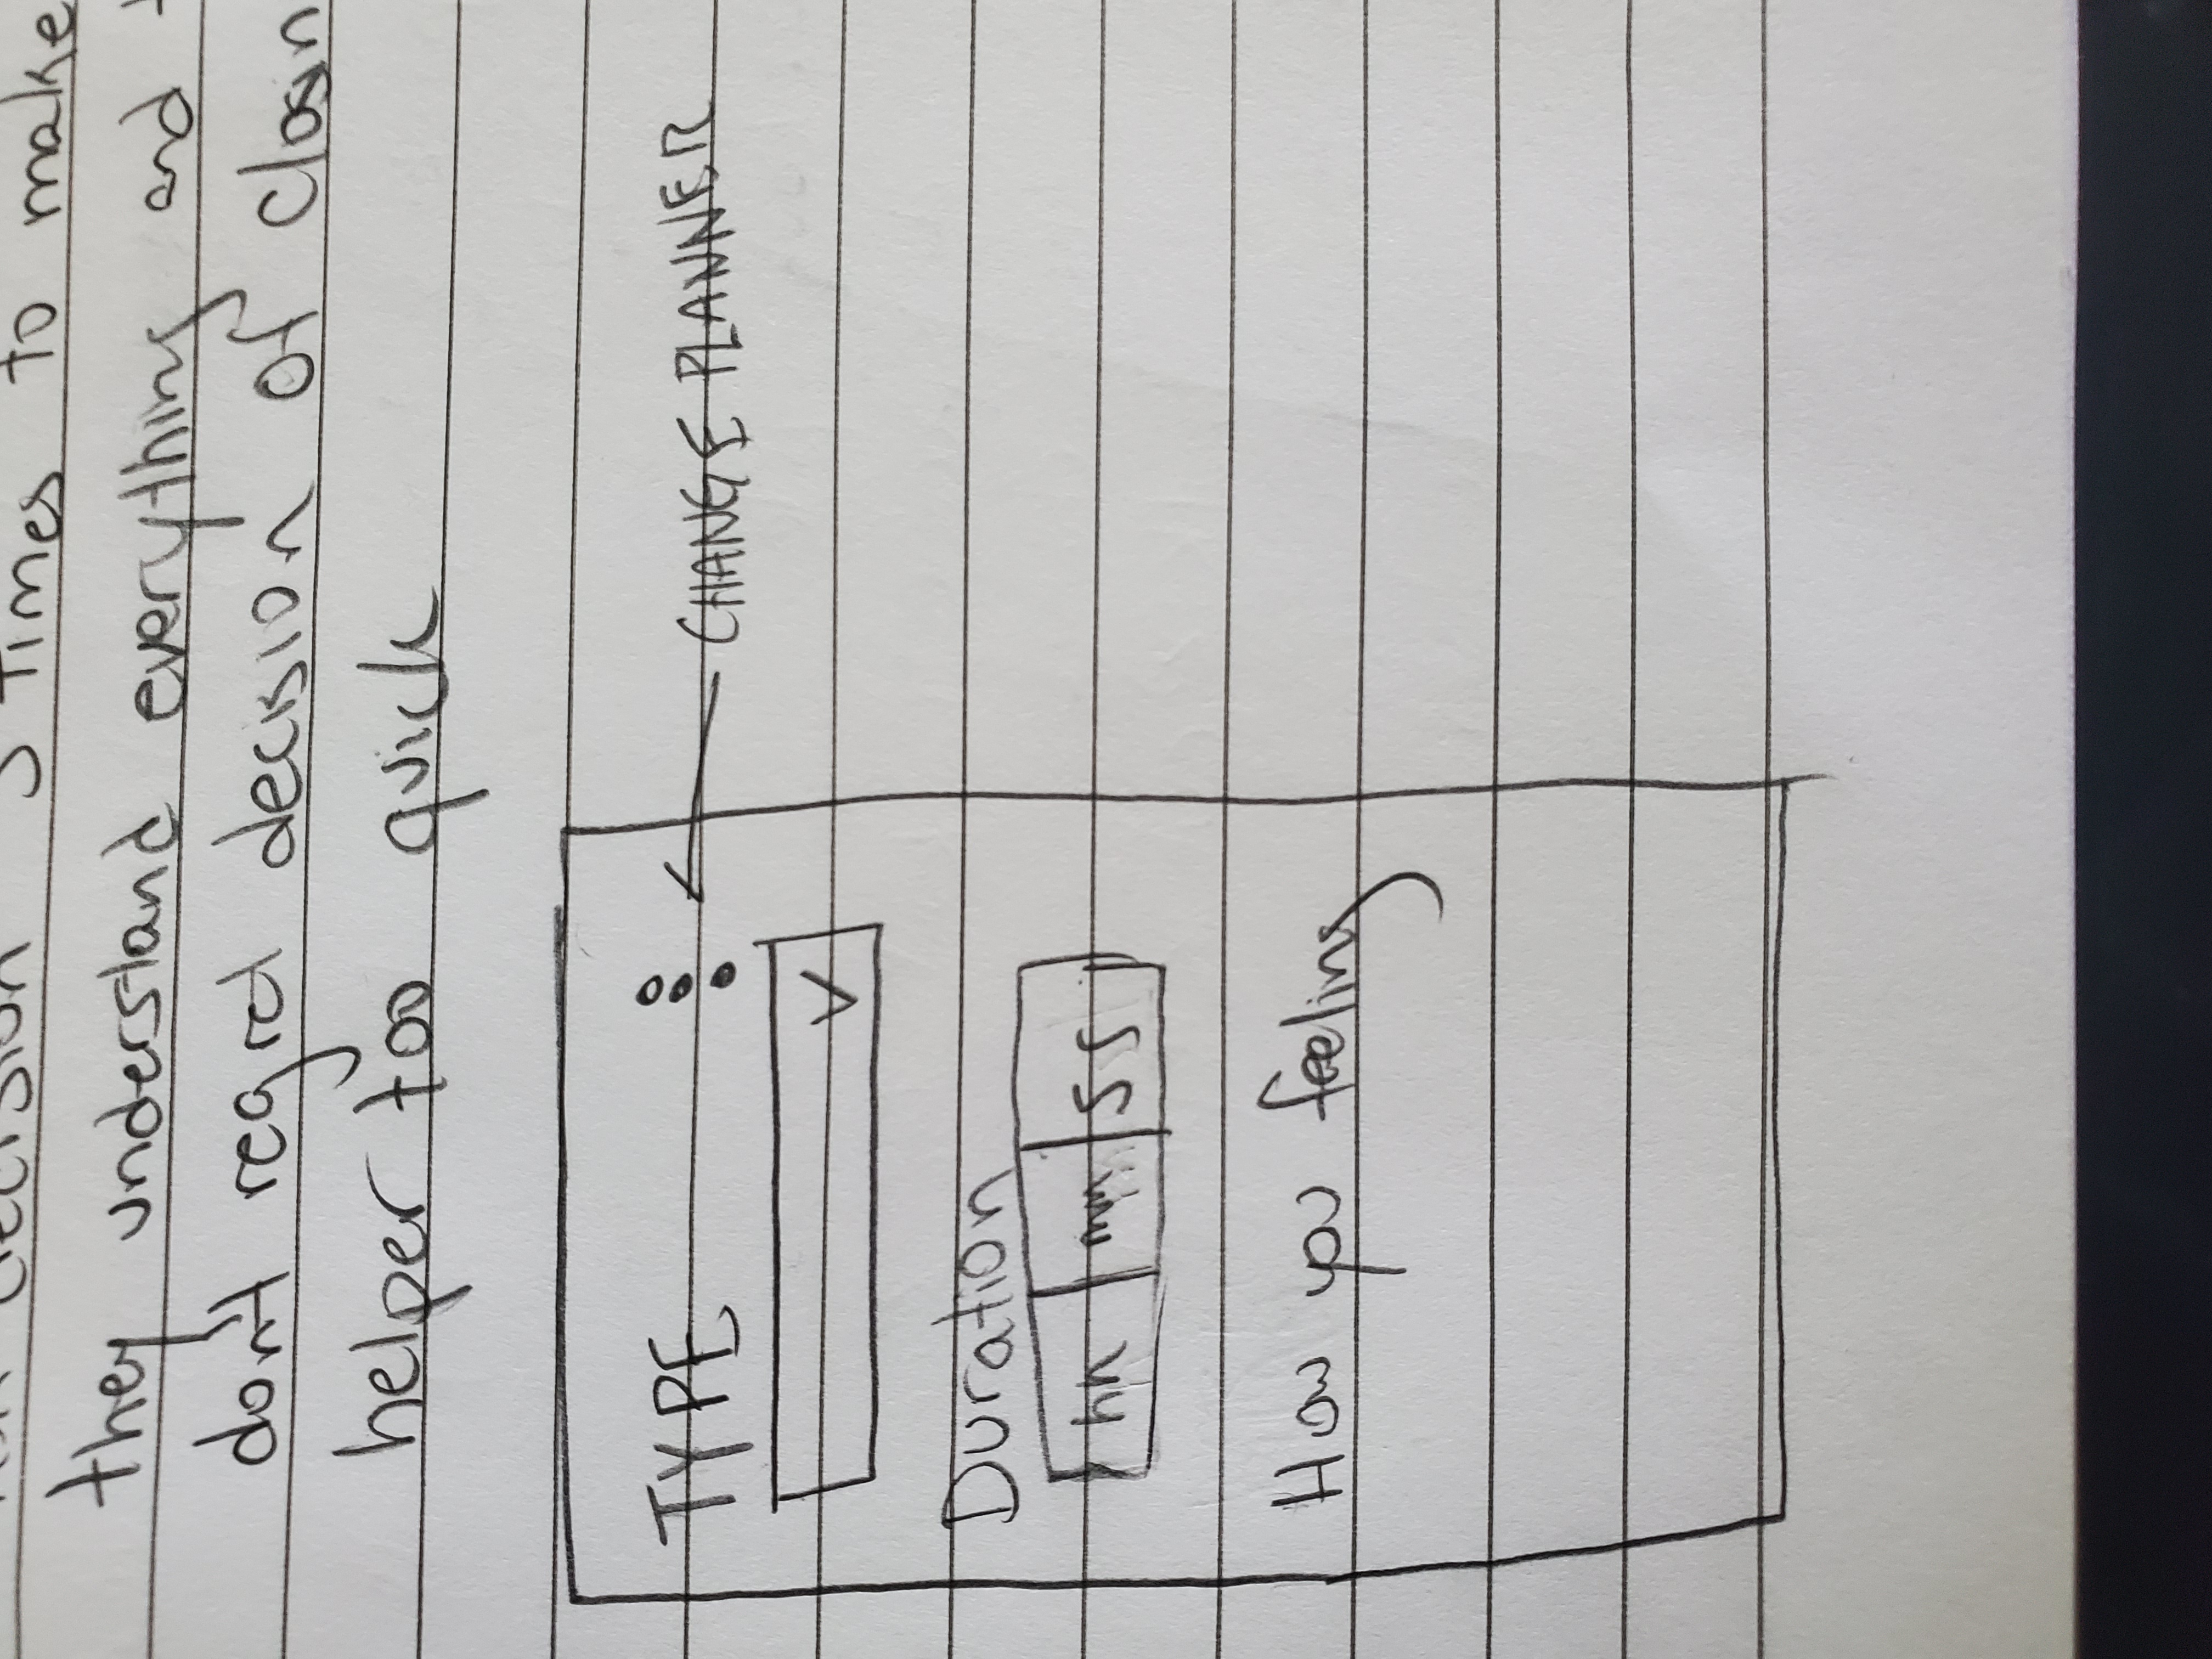 decision 3 times to make
they understand everything and
don't regret decision of closin
helper too quick
TYPE
CHANGE PLANNER
Duration
hh mm ss
How you feeling